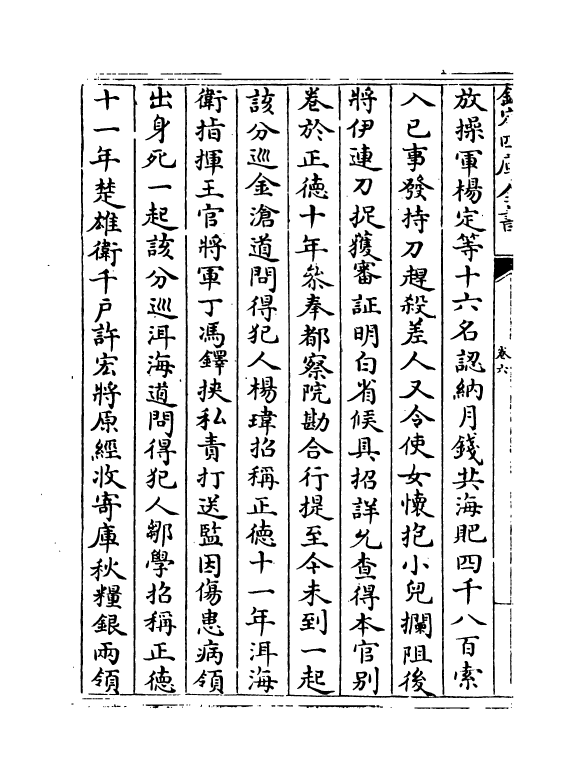 欽定四庫全書
卷六
放操軍楊定等十六名認納月錢共海𧵅四千八百索
入已事發持刀趕殺差人又令使女懷抱小兒攔阻後
將伊連刀捉獲審証明白省候具招詳允查得本官别
卷於正德十年叅奉都察院勘合行提至今未到一起
該分巡金滄道問得犯人楊瑋招稱正德十一年洱海
衛指揮王官將軍丁馮鐸挾私責打送監因傷患病領
出身死一起該分廵洱海道問得犯人鄒學招稱正德
十一年楚雄衛千戸許宏將原經收寄庫秋糧銀兩領